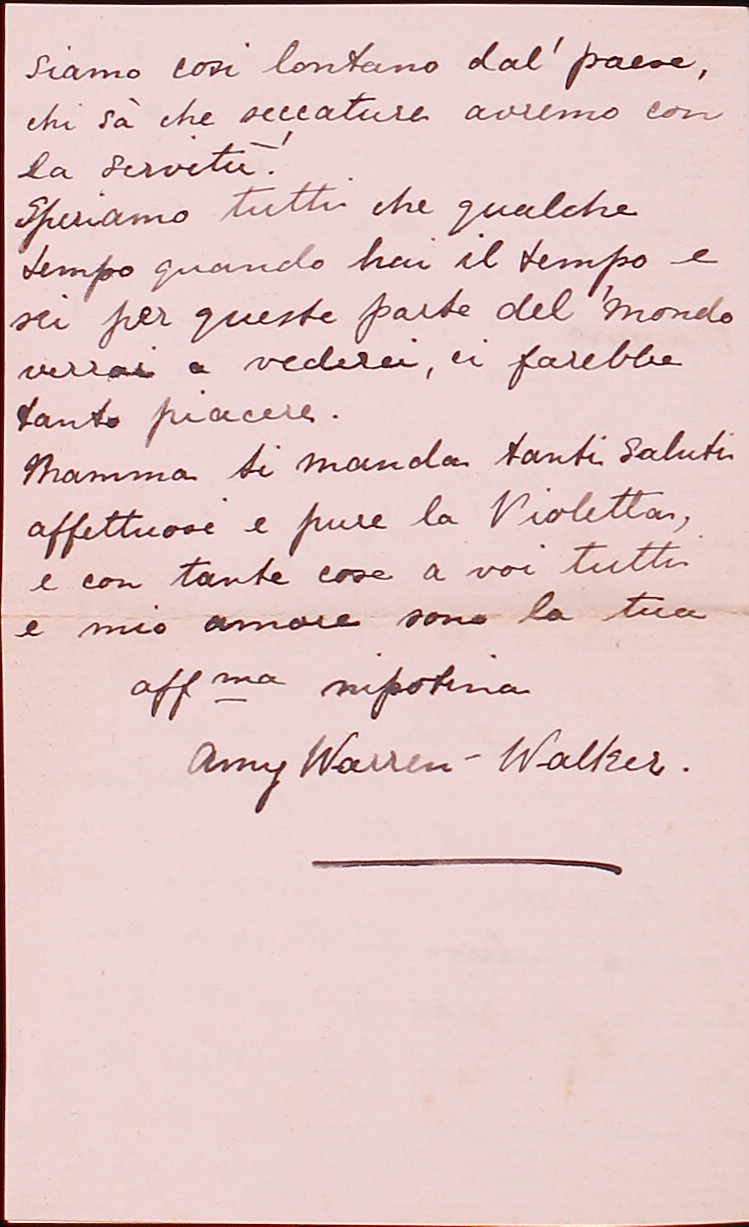 siamo cosi lontano dal' paese,
chi sà che seccature avremo con
la servitù!
Speriamo tutti che qualche
tempo quando hai il tempo e
sei per queste parte del mondo
verrai a vederci, ci farebbe
tanto piacere.
Mamma ti manda tanti saluti
affettuosi e pure la Violetta,
e con tante cose a voi tutti
e mio amore sono la tua
aff ma nipotina
Amy Warren-Walker.